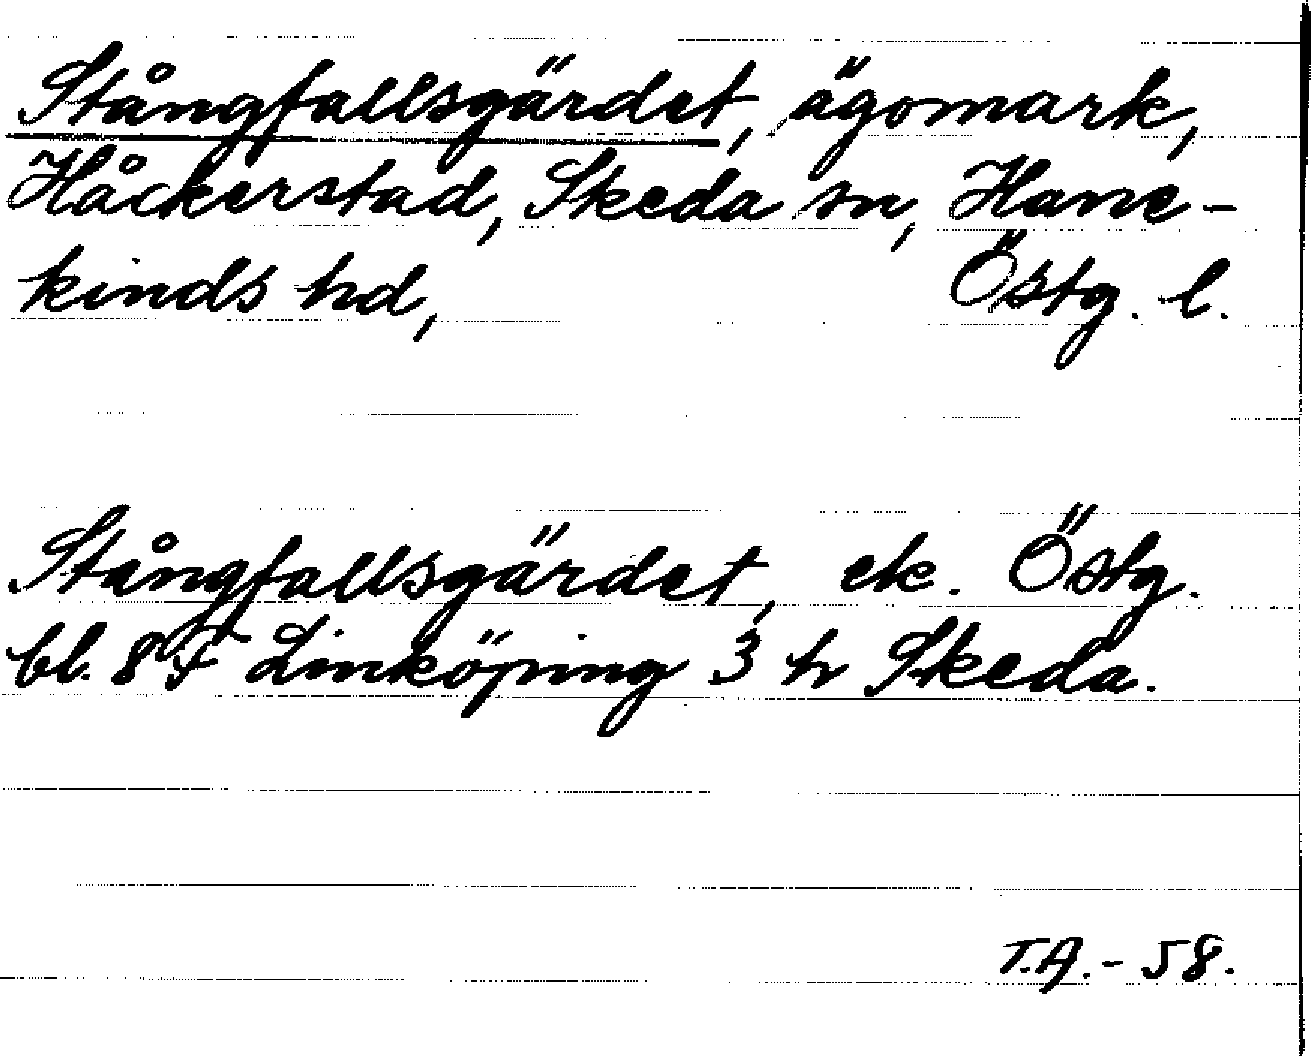 Stångfallsgärdet, ägomark,
Håckerstad, Skeda sn, Hane-
kinds hd, Östg. l.
Stångfallsgärdet, ek. Östg.
bl. 8F Linköping 3 h Skeda.
T.A.-58.